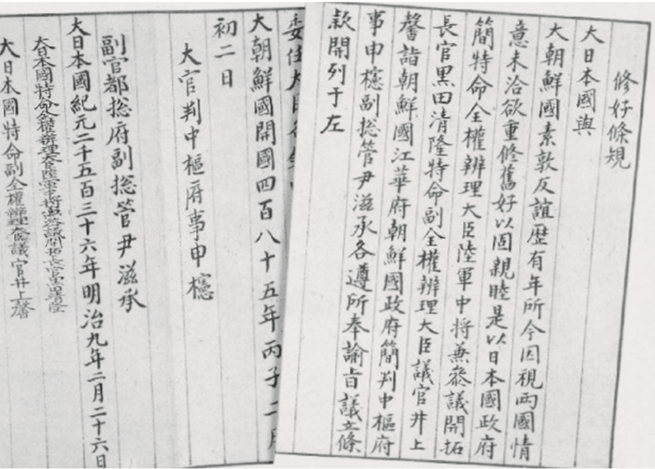 修好條規
大日本國與
大朝鮮國素敦友誼歷有年所今因視兩國情
意未洽欲重修舊好以固親睦是以日本國政府
簡特命全權辨理大臣陸軍中將兼參議開拓
長官黑田清隆特命副全權辨理大臣議官井上
馨詣朝鮮國江華府朝鮮國政府簡判中樞府
事申櫶副總管尹滋承各遵所奉諭旨議立條
款開列于左
大朝鮮國開國四百八十五年丙子二月
初二日
大官判中樞府事申櫶
副官都總府副總管尹滋承
大日本國紀元二千五百三十六年明治九年二月二十六日
大日本國特命全權辨理大臣陸軍中將兼參議開拓長官黑田清隆
大日本國特命副全權辨理大臣議官井上馨